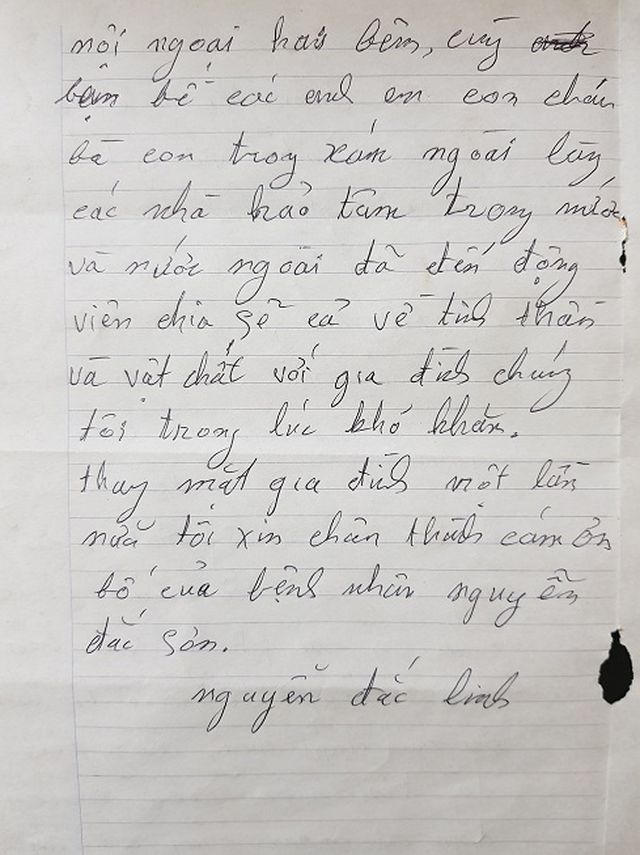 nội ngoại hai bên, cùng
bạn bè các anh em con cháu
bà con trong xóm ngoài làng
các nhà hảo tâm trong nước
và nước ngoài đã đến động
viên chia sẽ cả về tinh thần
và vật chất với gia đình chúng
tôi trong lúc khó khăn.
thay mặt gia đình một lần
nữa tôi xin chân thành cám ơn
bố của bệnh nhân nguyễn
đắc sơn.
nguyễn đắc linh